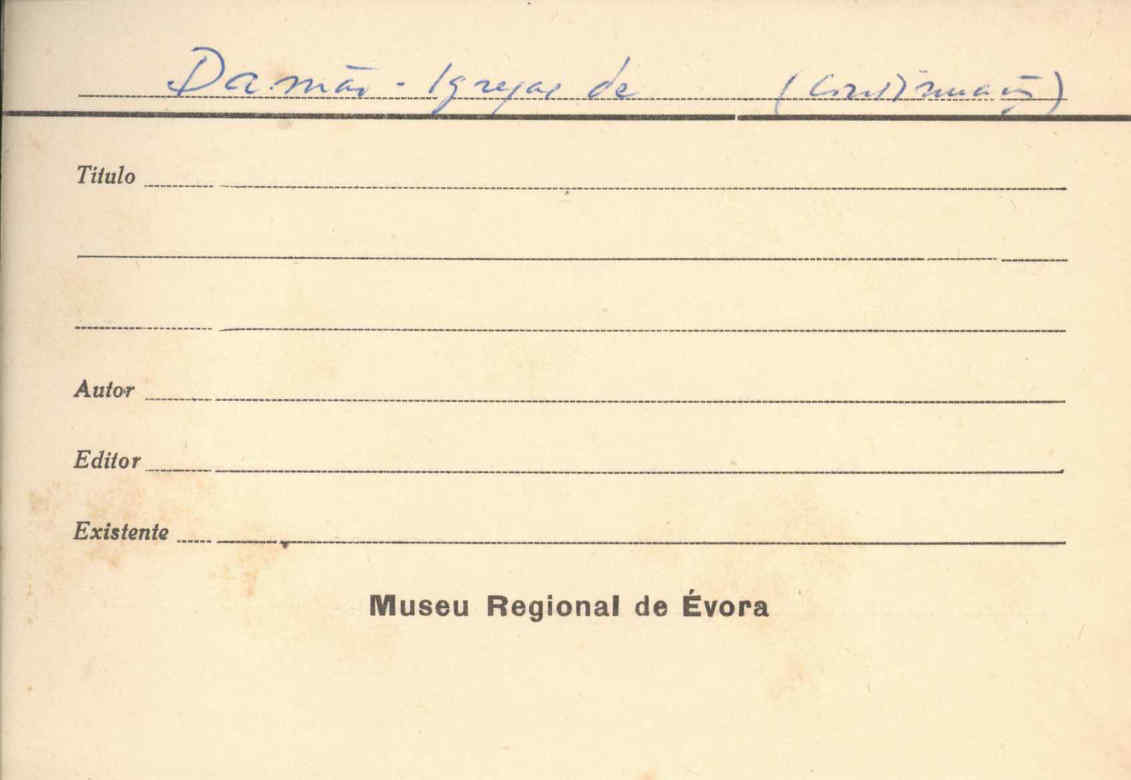 Damão - Igrejas de (Continuação)
Título
Autor
Editor
Existente
Museu Regional de Évora